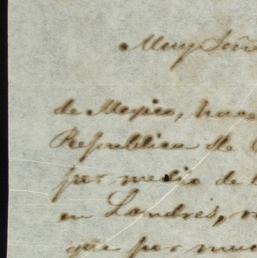 Muy Señ
de Mexico, hace
Republica de
por medio de
en Landres,
que por muc